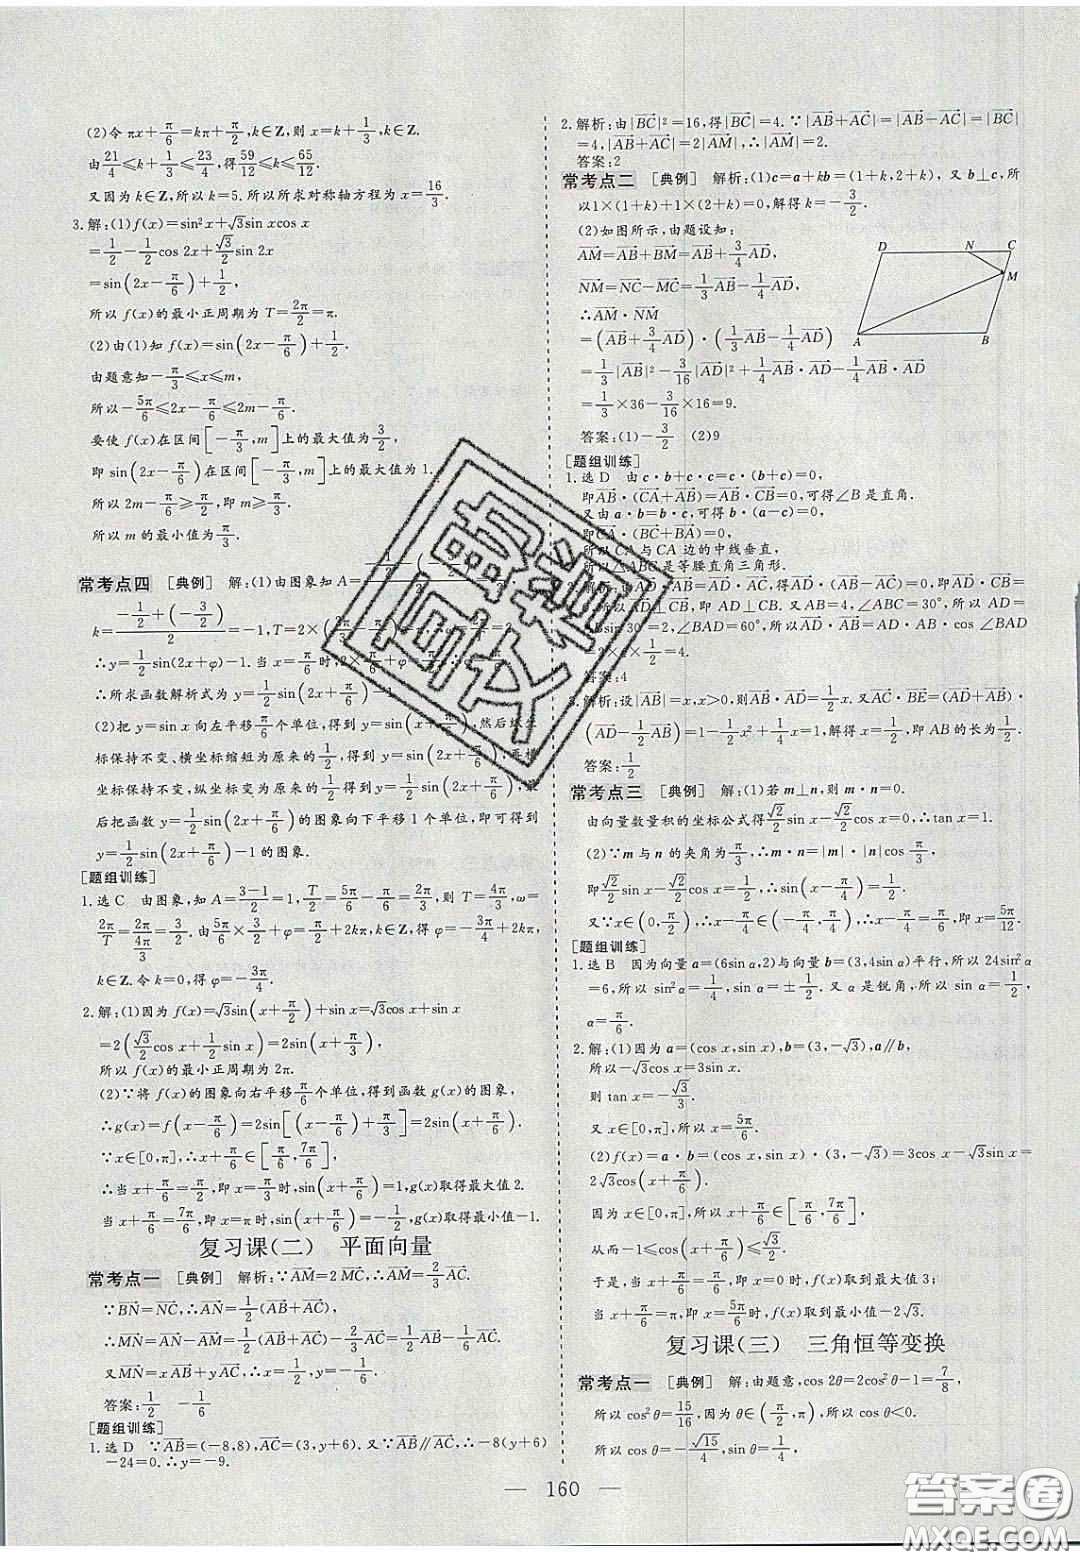 (2)令πx+π/6=kπ+π/2,k∈Z,则 x=k+1/3,k∈Z.
由21/4≤k+1/3≤23/4,得59/12≤k≤65/12.
又因为 k∈Z,所以 k=5.所以所求对称轴方程为 x=16/3.
3.解:(1)f(x)=sin²x+√3sin xcos x
=1/2-1/2cos 2x+√3/2sin 2x
=sin(2x-π/6)+1/2,
所以 f(x)的最小正周期为 T=2π/2=π.
(2)由(1)知 f(x)=sin(2x-π/6)+1/2.
由题意知-π/3≤x≤m,
所以-5π/6≤2x-π/6≤2m-π/6.
要使 f(x)在区间[-π/3,m]上的最大值为3/2,
即 sin(2x-π/6)在区间[-π/3,m]上的最大值为 1.
所以 2m-π/6≥π/2,即 m≥π/3.
所以 m 的最小值为π/3.
常考点四 [典例] 解:(1)由图象知 A=
k=(-1/2+(-3/2))/2=-1,T=2×
∴y=1/2sin(2x+φ)-1.当 x=π/6时,2×π/6+φ=
∴所求函数解析式为 y=1/2sin(2x+π/6)-1.
(2)把 y=sin x 向左平移π/6个单位,得到 y=sin(x+π/6),然后纵坐
标保持不变、横坐标缩短为原来的1/2,得到 y=sin(2x+π/6),再横
坐标保持不变,纵坐标变为原来的1/2,得到 y=1/2sin(2x+π/6),最
后把函数 y=1/2sin(2x+π/6)的图象向下平移 1 个单位,即可得到
y=1/2sin(2x+π/6)-1 的图象.
[题组训练]
1.选 C 由图象,知 A=(3-1)/2=1,T/2=5π/6-π/6=2π/3,则 T=4π/3,ω=
2π/T=2π/(4π/3)=3/2.由5π/6×3/2+φ=π/2+2kπ,得 φ=-3π/4+2kπ,
k∈Z.令 k=0,得 φ=-3π/4.
2.解:(1)因为 f(x)=√3sin(x+π/2)+sin x=√3cos x+sin x
=2(√3/2cos x+1/2sin x)=2sin(x+π/3),
所以 f(x)的最小正周期为 2π.
(2)∵将 f(x)的图象向右平移π/6个单位,得到函数 g(x)的图象,
∴g(x)=f(x-π/6)=2sin[(x-π/6)+π/3]=2sin(x+π/6).
∵x∈[0,π],∴x+π/6∈[π/6,7π/6],
∴当 x+π/6=π/2,即 x=π/3时,sin(x+π/6)=1,g(x)取得最大值 2.
当 x+π/6=7π/6,即 x=π 时,sin(x+π/6)=-1/2,g(x)取得最小值-1.
复习课(二) 平面向量
常考点一 [典例] 解析:∵AM=2 MC,∴AM=2/3AC.
∵BN=NC,∴AN=1/2(AB+AC),
∴MN=AN-AM=1/2(AB+AC)-2/3AC=1/2AB-1/6AC.
又MN=xAB+yAC,∴x=1/2,y=-1/6.
答案:1/2 -1/6
[题组训练]
1.选 D ∵AB=(-8,8),AC=(3,y+6).又∵AB∥AC,∴-8(y+6)
-24=0.∴y=-9.
2.解析:由|BC|²=16,得|BC|=4.∵|AB+AC|=|AB-AC|=|BC|
=4,|AB+AC|=2|AM|,∴|AM|=2.
答案:2
常考点二 [典例] 解析:(1)c=a+kb=(1+k,2+k),又 b⊥c,所
以1×(1+k)+1×(2+k)=0,解得 k=-3/2.
(2)如图所示,由题设知:
AM=AB+BM=AB+3/4AD,
NM=NC-MC=1/3AB-1/4AD,
∴AM·NM
=(AB+3/4AD)·(1/3AB-1/4AD)
=1/3|AB|²-3/16|AD|²+1/4AB·AD-1/4AB·AD
=1/3×36-3/16×16=9.
D N C M A B
答案:(1)-3/2 (2)9
[题组训练]
1.选 D 由 c·b+c·c=c·(b+c)=0,
即AB·(CA+AB)=AB·CB=0,可得∠B 是直角.
又由 a·b=b·c,可得 b·(a-c)=0,
即CA·(BC+BA)=0,
所以 CA 与 CA 边的中线垂直,
所以△ABC 是等腰直角三角形.
AC·AD-AB·AD=0,即AD·CB=
0,所以AD⊥CB,即 AD⊥CB.又 AB=4,∠ABC=30°,所以 AD=
sin 30°=2,∠BAD=60°,所以AB·AD=AB·AD·cos∠BAD=
=4.
答案:4
3.解析:设|AB|=x,x>0,则AB·AD=1/2x.又AC·BE=(AD+AB)·
(AD-1/2AB)=1-1/2x²+1/4x=1,解得 x=1/2,即 AB 的长为1/2.
答案:1/2
常考点三 [典例] 解:(1)若 m⊥n,则 m·n=0.
由向量数量积的坐标公式得√2/2sin x-√2/2cos x=0,∴tan x=1.
(2)∵m 与 n 的夹角为π/3,∴m·n=|m|·|n|cos π/3,
即√2/2sin x-√2/2cos x=1/2,∴sin(x-π/4)=1/2.
又∵x∈(0,π/2),∴x-π/4∈(-π/4,π/4),∴x-π/4=π/6,即 x=5π/12.
[题组训练]
1.选 B 因为向量 a=(6sin α,2)与向量 b=(3,4sin α)平行,所以 24sin²α
=6,所以 sin²α=1/4,sin α=±1/2.又 α 是锐角,所以 sin α=1/2,
α=π/6.
2.解:(1)因为 a=(cos x,sin x),b=(3,-√3),a∥b,
所以-√3cos x=3sin x.
则 tan x=-√3/3.
又 x∈[0,π],所以 x=5π/6.
(2)f(x)=a·b=(cos x,sin x)·(3,-√3)=3cos x-√3sin x=
2√3cos(x+π/6).
因为 x∈[0,π],所以 x+π/6∈[π/6,7π/6],
从而-1≤cos(x+π/6)≤√3/2.
于是,当 x+π/6=π/6,即 x=0 时,f(x)取到最大值 3;
当 x+π/6=π,即 x=5π/6时,f(x)取到最小值-2√3.
复习课(三) 三角恒等变换
常考点一 [典例] 解:由题意,cos 2θ=2cos²θ-1=7/8,
所以 cos²θ=15/16,因为 θ∈(π/2,π),所以 cos θ<0.
所以 cos θ=-√15/4,sin θ=1/4,
160
答案圈
MXQE.COM